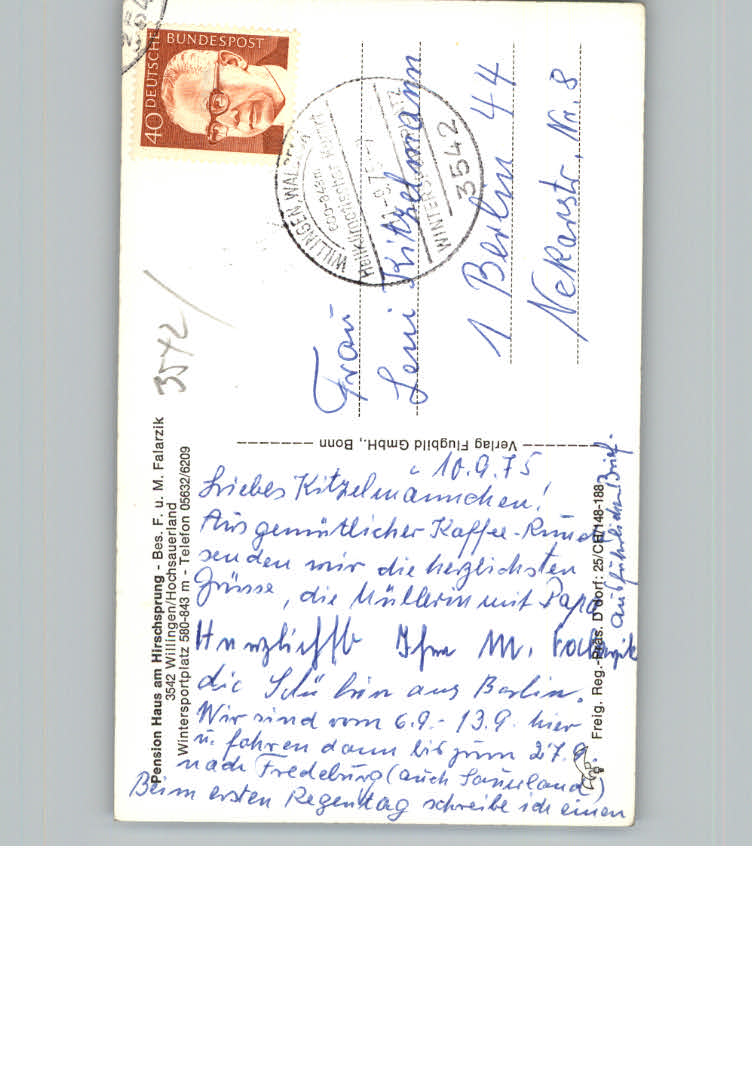 DEUTSCHE BUNDESPOST
40
WILLINGEN, WALDECK
600-843m
Heilklimatischer Kurort
WINTERSPORTPLATZ
3542
3542/
Frau
Leni Kitzelmann
1 Berlin 44
Nekarstr, Nr. 8
Pension Haus am Hirschsprung - Bes. F. u. M. Falarzik
3542 Willingen/Hochsauerland
Wintersportplatz 580-843 m - Telefon 05632/6209
Verlag Flugbild GmbH., Bonn
Freig. Reg.-Präs. D'dorf: 25/CH/148-188
10.9.75
Liebes Kitzelmannchen!
Aus gemütlicher Kaffee-Runde
senden wir die herzlichsten
Grüsse, die Müllerin mit Papa
Herzlichst Ihre M. Falarzik
die aus Berlin.
Wir sind vom 6.9.-13.9. hier
u. fahren dann bis zum 27.9.
nach Fredeburg (auch Sauerland)
Beim ersten Regentag schreibe ich einen
ausführlichen Brief.